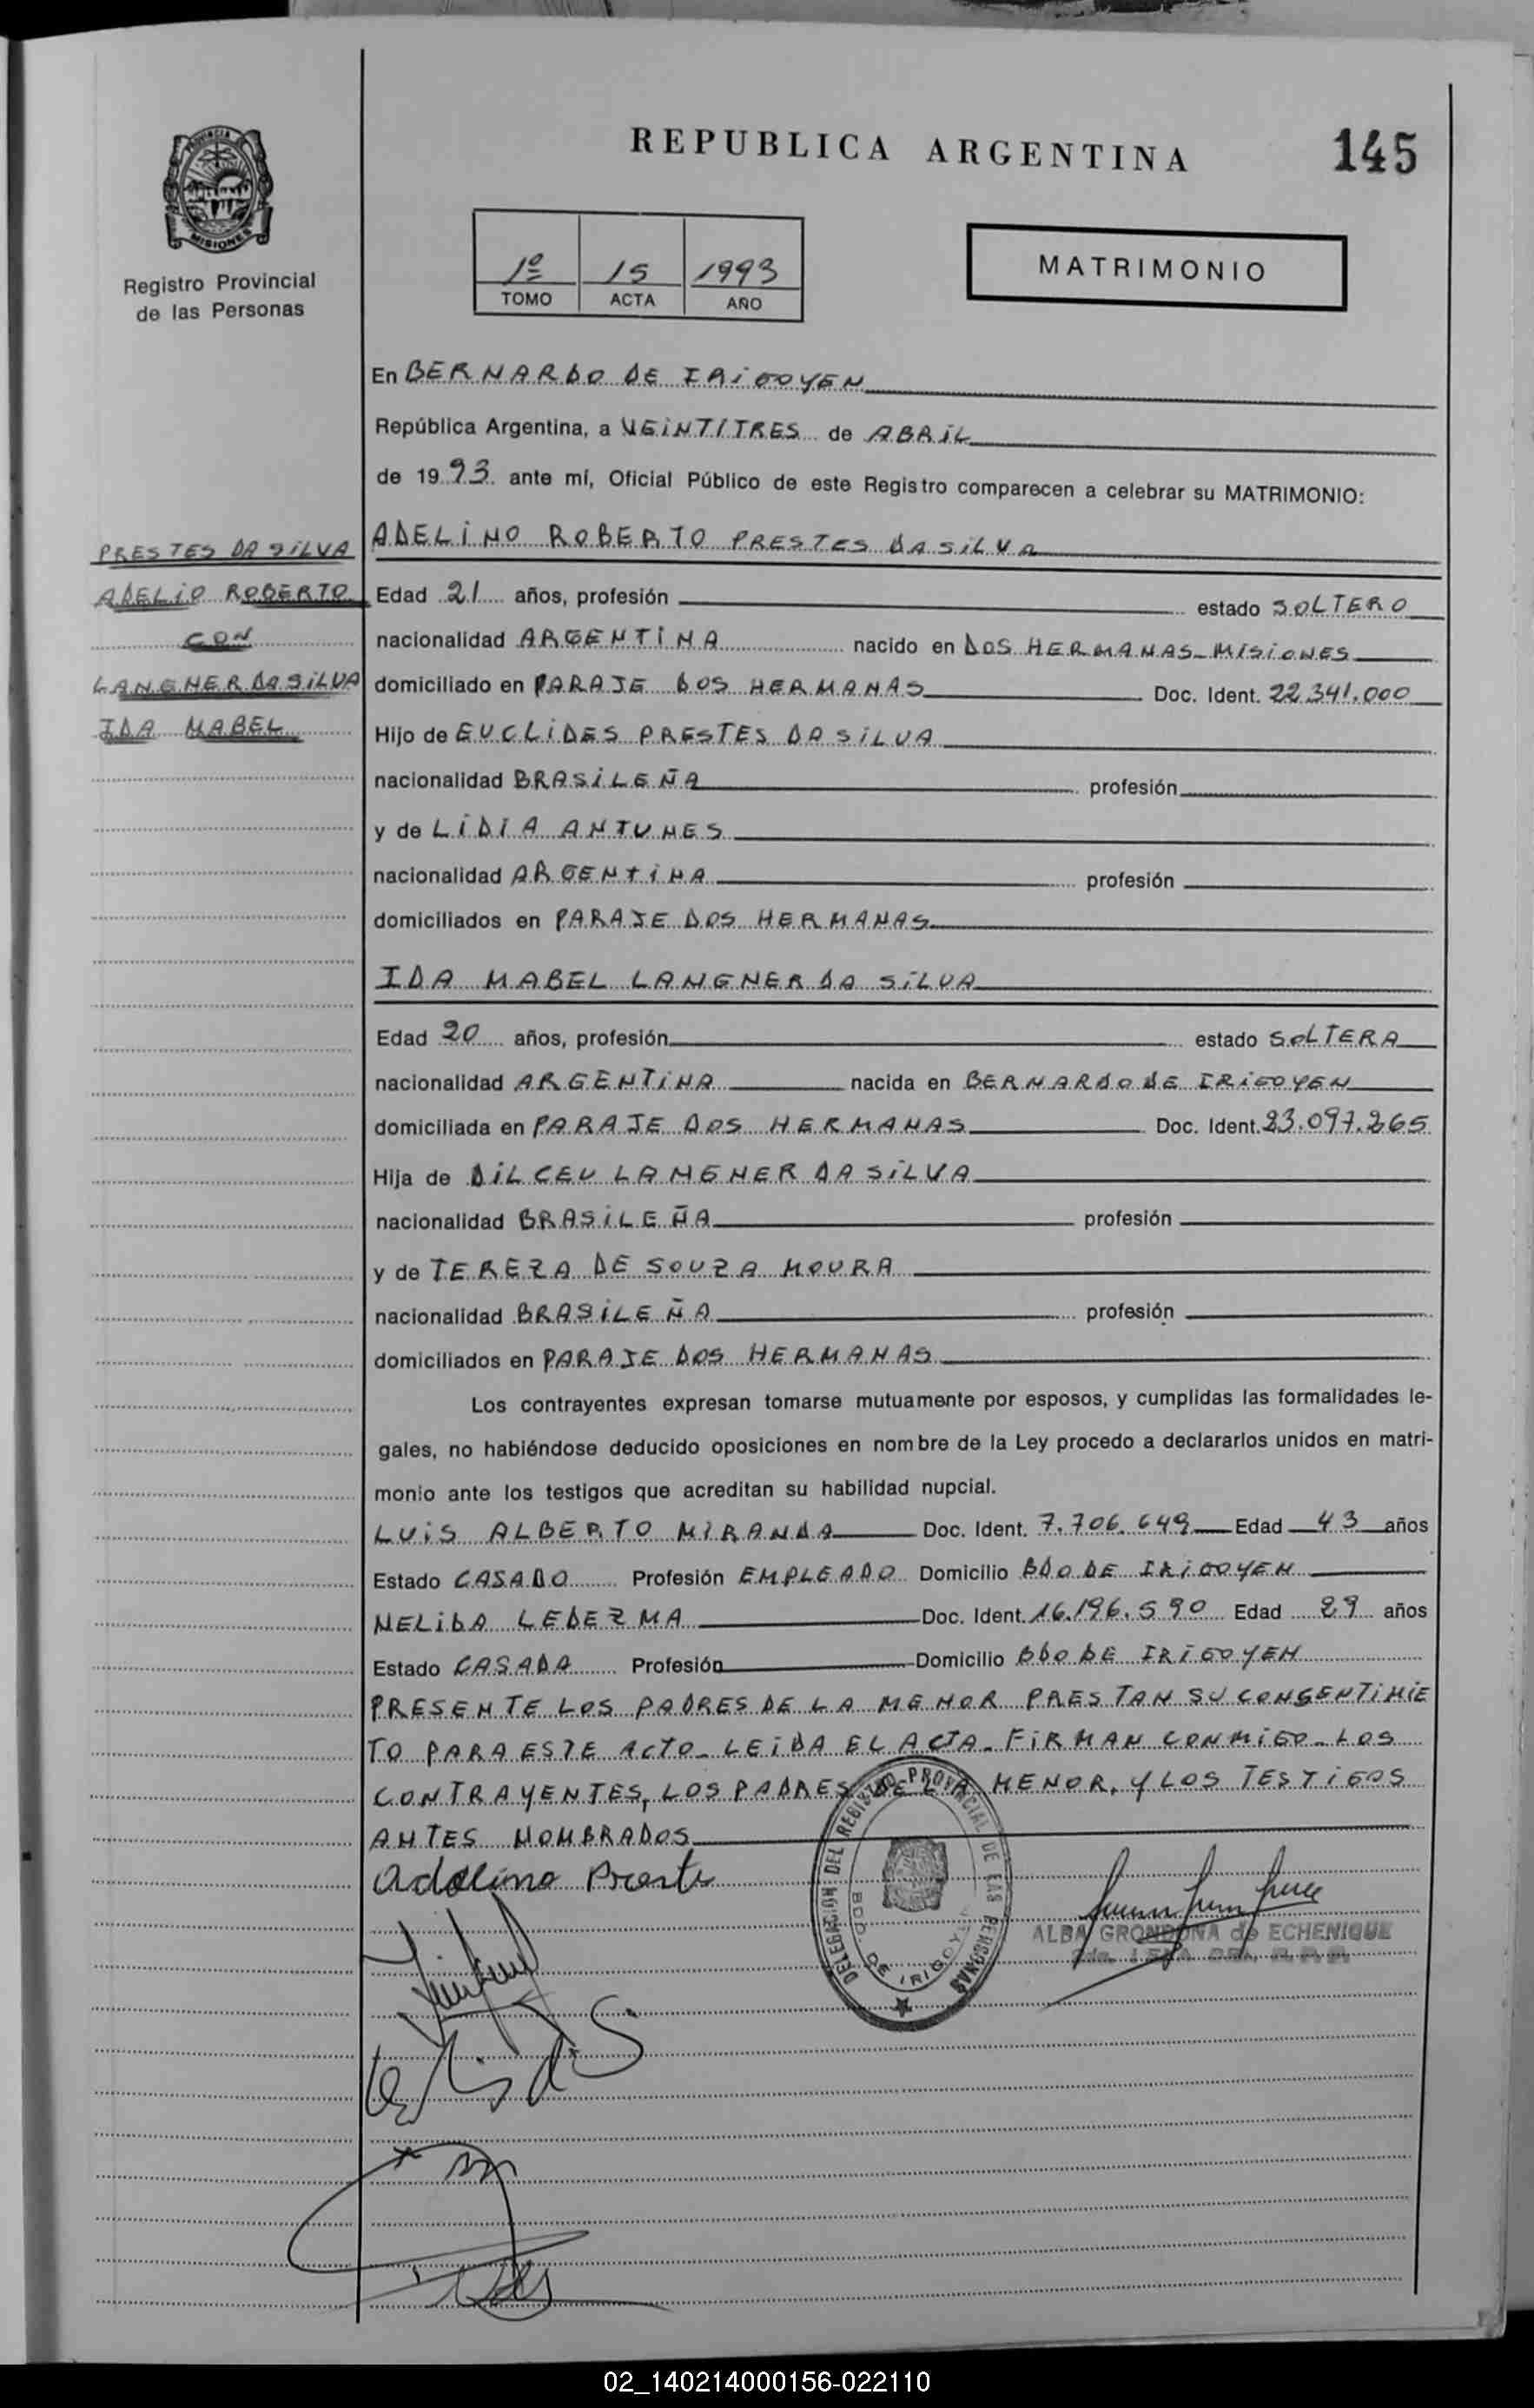 REPUBLICA ARGENTINA
145
PROVINCIA
MISIONES
Registro Provincial
de las Personas
1º 15 1993
TOMO ACTA AÑO
MATRIMONIO
En BERNARDO DE IRIGOYEN
República Argentina, a VEINTITRES de ABRIL
de 1993 ante mí, Oficial Público de este Registro comparecen a celebrar su MATRIMONIO:
PRESTES DA SILVA
ADELIO ROBERTO
CON
LANGNER DA SILVA
IDA MABEL
ADELINO ROBERTO PRESTES DA SILVA
Edad 21 años, profesión estado SOLTERO
nacionalidad ARGENTINA nacido en DOS HERMANAS-MISIONES
domiciliado en PARAJE DOS HERMANAS Doc. Ident. 22.341.000
Hijo de EUCLIDES PRESTES DA SILVA
nacionalidad BRASILEÑA profesión
y de LIDIA ANTUNES
nacionalidad ARGENTINA profesión
domiciliados en PARAJE DOS HERMANAS
IDA MABEL LANGNER DA SILVA
Edad 20 años, profesión estado SOLTERA
nacionalidad ARGENTINA nacida en BERNARDO DE IRIGOYEN
domiciliada en PARAJE DOS HERMANAS Doc. Ident. 23.097.265
Hija de DILCEU LANGNER DA SILVA
nacionalidad BRASILEÑA profesión
y de TEREZA DE SOUZA MOURA
nacionalidad BRASILEÑA profesión
domiciliados en PARAJE DOS HERMANAS
Los contrayentes expresan tomarse mutuamente por esposos, y cumplidas las formalidades le-
gales, no habiéndose deducido oposiciones en nombre de la Ley procedo a declararlos unidos en matri-
monio ante los testigos que acreditan su habilidad nupcial.
LUIS ALBERTO MIRANDA Doc. Ident. 7.706.649 Edad 43 años
Estado CASADO Profesión EMPLEADO Domicilio BDO DE IRIGOYEN
NELIDA LEDEZMA Doc. Ident. 16.196.590 Edad 29 años
Estado CASADA Profesión Domicilio BDO DE IRIGOYEN
PRESENTE LOS PADRES DE LA MENOR PRESTAN SU CONSENTIMIE
TO PARA ESTE ACTO_ LEIDA EL ACTA_ FIRMAN CONMIGO_ LOS
CONTRAYENTES, LOS PADRES DE LA MENOR, Y LOS TESTIGOS
ANTES NOMBRADOS
DELEGACION DEL REGISTRO PROVINCIAL DE LAS PERSONAS
BDO. DE IRIGOYEN
Adelino Preste
ALBA GRONDONA de ECHENIQUE
02_140214000156-022110